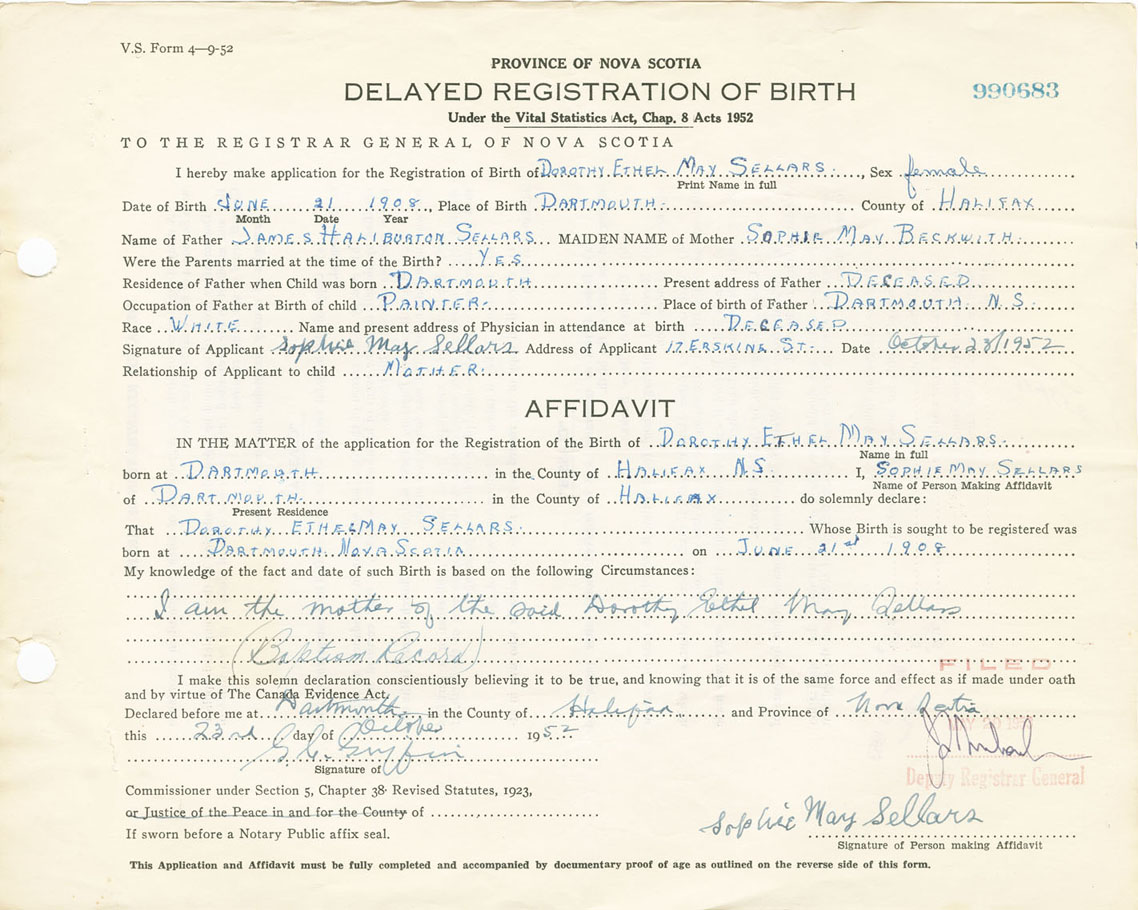 V.S. Form 4—9-52
PROVINCE OF NOVA SCOTIA
DELAYED REGISTRATION OF BIRTH
990683
Under the Vital Statistics Act, Chap. 8 Acts 1952
TO THE REGISTRAR GENERAL OF NOVA SCOTIA
I hereby make application for the Registration of Birth of DOROTHY ETHEL MAY SELLARS, Sex female
Print Name in full
Date of Birth JUNE 21 1908, Place of Birth DARTMOUTH County of HALIFAX
Month Date Year
Name of Father JAMES HALIBURTON SELLARS MAIDEN NAME of Mother SOPHIE MAY BECKWITH
Were the Parents married at the time of the Birth? YES
Residence of Father when Child was born DARTMOUTH Present address of Father DECEASED
Occupation of Father at Birth of child PAINTER Place of birth of Father DARTMOUTH N.S.
Race WHITE Name and present address of Physician in attendance at birth DECEASED
Signature of Applicant Sophie May Sellars Address of Applicant 17 ERSKINE ST. Date October 23/1952
Relationship of Applicant to child MOTHER
AFFIDAVIT
IN THE MATTER of the application for the Registration of the Birth of DOROTHY ETHEL MAY SELLARS
Name in full
born at DARTMOUTH in the County of HALIFAX N.S. I, SOPHIE MAY SELLARS
Name of Person Making Affidavit
of DARTMOUTH in the County of HALIFAX do solemnly declare:
Present Residence
That DOROTHY ETHEL MAY SELLARS Whose Birth is sought to be registered was
born at DARTMOUTH NOVA SCOTIA on JUNE 21st 1908
My knowledge of the fact and date of such Birth is based on the following Circumstances:
I am the mother of the said Dorothy Ethel May Sellars
(Baptism Record)
FILED
I make this solemn declaration conscientiously believing it to be true, and knowing that it is of the same force and effect as if made under oath
and by virtue of The Canada Evidence Act.
Declared before me at Dartmouth in the County of Halifax and Province of Nova Scotia
this 23rd day of October 1952
Griffin
Signature of
Deputy Registrar General
Commissioner under Section 5, Chapter 38 Revised Statutes, 1923,
or Justice of the Peace in and for the County of
Sophie May Sellars
If sworn before a Notary Public affix seal.
Signature of Person making Affidavit
This Application and Affidavit must be fully completed and accompanied by documentary proof of age as outlined on the reverse side of this form.